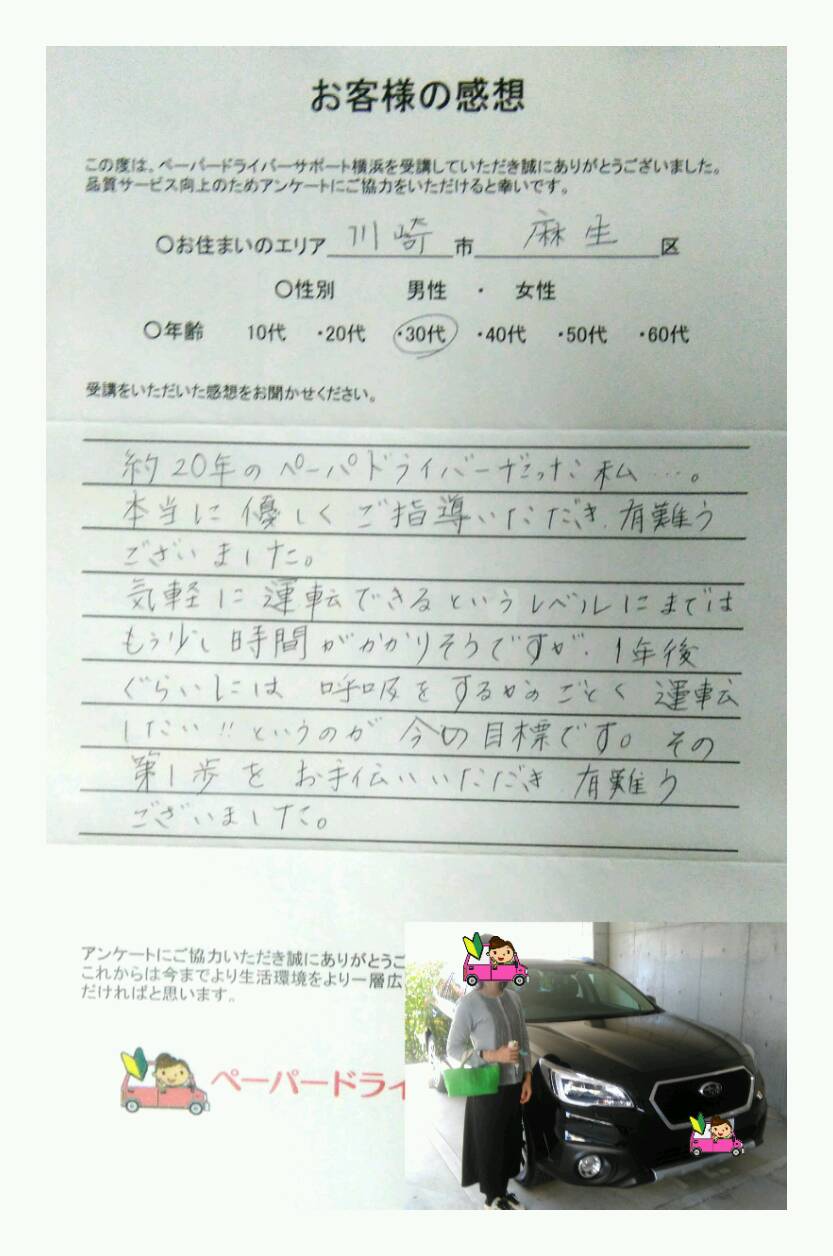 お客様の感想
この度は、ペーパードライバーサポート横浜を受講していただき誠にありがとうございました。
品質サービス向上のためアンケートにご協力をいただけると幸いです。
〇お住まいのエリア 川崎 市 麻生 区
〇性別 男性 ・ 女性
〇年齢 10代 ・20代 ・30代 ・40代 ・50代 ・60代
受講をいただいた感想をお聞かせください。
約20年のペーパドライバーだった私…。
本当に優しくご指導いただき、有難う
ございました。
気軽に運転できるというレベルにまでは
もう少し時間がかかりそうですが、1年後
ぐらいには 呼吸をするかのごとく 運転
したい!!というのが 今の目標です。その
第1歩を お手伝いいただき 有難う
ございました。
アンケートにご協力いただき誠にありがとうご
これからは今までより生活環境をより一層広
だければと思います。
ペーパードライ